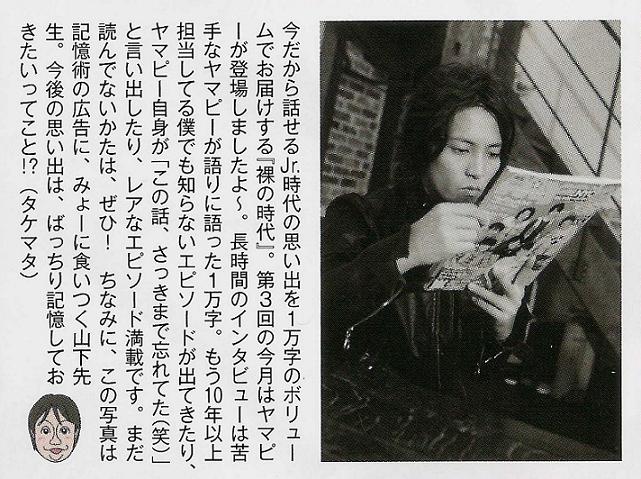 今だから話せるJr.時代の思い出を1万字のボリュー
ムでお届けする『裸の時代』。第3回の今月はヤマピ
ーが登場しましたよ〜。長時間のインタビューは苦
手なヤマピーが語りに語った1万字。もう10年以上
担当してる僕でも知らないエピソードが出てきたり、
ヤマピー自身が「この話、さっきまで忘れてた（笑）」
と言い出したり、レアなエピソード満載です。まだ
読んでないかたは、ぜひ！　ちなみに、この写真は
記憶術の広告に、みょーに食いつく山下先
生。今後の思い出は、ばっちり記憶してお
きたいってこと!?（タケマタ）